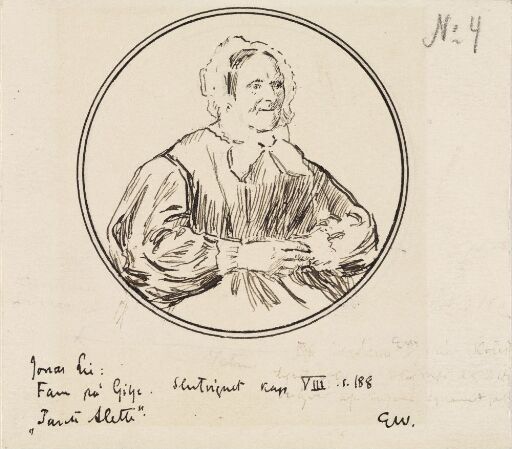 No: 4
Jonas Lie:
Fam. på Gilje. Slutvignet Kap VIII s. 188
"Tante Alette".
EW.